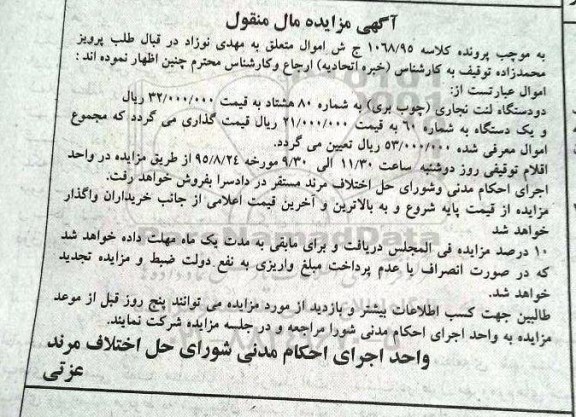 آگهی مزایده مال منقول
به موجب پرونده کلاسه ۱۰۶۸/۹۵ ج ش اموال متعلق به مهدی نوزاد در قبال طلب پرویز
محمدزاده توقیف به کارشناس (خبره اتحادیه) ارجاع وکارشناس محترم چنین اظهار نموده اند :
اموال عبارتست از:
دودستگاه لنت نجاری (چوب بری) به شماره ۸۰ هشتاد به قیمت ۳۲/۰۰۰/۰۰۰ ریال
و یک دستگاه به شماره ۶۰ به قیمت ۲۱/۰۰۰/۰۰۰ ریال قیمت گذاری می گردد که مجموع
اموال معرفی شده ۵۳/۰۰۰/۰۰۰ ریال تعیین می گردد.
اقلام توقیفی روز دوشنبه ساعت ۱۱/۳۰ الی ۹/۳۰ مورخه ۹۵/۸/۲۴ از طریق مزایده در واحد
اجرای احکام مدنی وشورای حل اختلاف مرند مستقر در دادسرا بفروش خواهد رفت.
مزایده از قیمت پایه شروع و به بالاترین و آخرین قیمت اعلامی از جانب خریداران واگذار
خواهد شد
۱۰ درصد مزایده فی المجلس دریافت و برای مابقی به مدت یک ماه مهلت داده خواهد شد
که در صورت انصراف یا عدم پرداخت مبلغ واریزی به نفع دولت ضبط و مزایده تجدید
خواهد شد.
طالبین جهت کسب اطلاعات بیشتر و بازدید از مورد مزایده می توانند پنج روز قبل از موعد
مزایده به واحد اجرای احکام مدنی شورا مراجعه و در جلسه مزایده شرکت نمایند.
واحد اجرای احکام مدنی شورای حل اختلاف مرند
عزتی
ParsNamadData